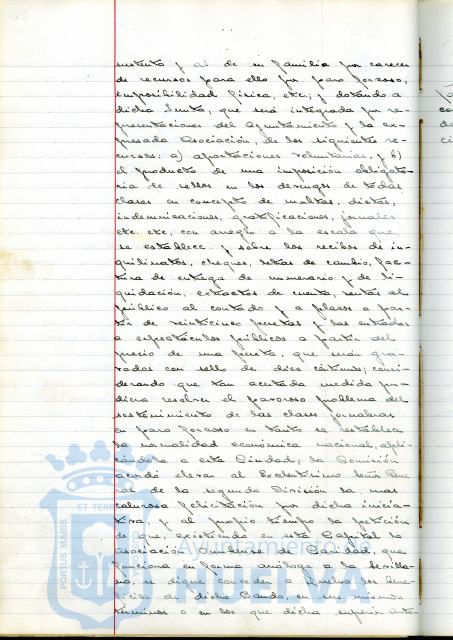 sustento y al de su familia por carecer
de recursos para ello por paro forzoso,
imposibilidad física, etc.; y dotando a
dicha Junta, que será integrada por re-
presentaciones del Ayuntamiento y la ex-
presada Asociación, de los siguientes re-
cursos: a) aportaciones voluntarias, y b)
el producto de una imposición obligato-
ria de sellos en los devengos de todas
clases en concepto de multas, dietas,
indemnizaciones, gratificaciones, jornales
etc. etc. con arreglo a la escala que
se establece, y sobre los recibos de in-
quilinatos, cheques, letras de cambio, fac-
tura de entrega de numerario y de li-
quidación, extractos de cuenta, ventas al
público al contado y a plazos a par-
tir de veinticinco pesetas y las entradas
a espectáculos públicos a partir del
precio de una peseta, que serán gra-
vados con sello de diez céntimos; consi-
derando que tan acertada medida pu-
diera resolver el pavoroso problema del
sostenimiento de las clases jornaleras
en paro forzoso en tanto se restablece
la normalidad económica nacional, apli-
cándola a esta Ciudad, la Comisión
acordó elevar al Excelentísimo Señor Gene-
ral de la segunda División la mas
calurosa felicitación por dicha inicia-
tiva, y al propio tiempo la petición
de que, existiendo en esta Capital la
Asociación Onubense de Caridad, que
funciona en forma análoga a la Sevilla-
na, se digne conceder a Huelva los bene-
ficios de dicho Bando, en sus mismos
términos o en los que dicha superior auto-
PORTUS MARIS ET TERRÆ
Ayuntamiento de
HUELVA